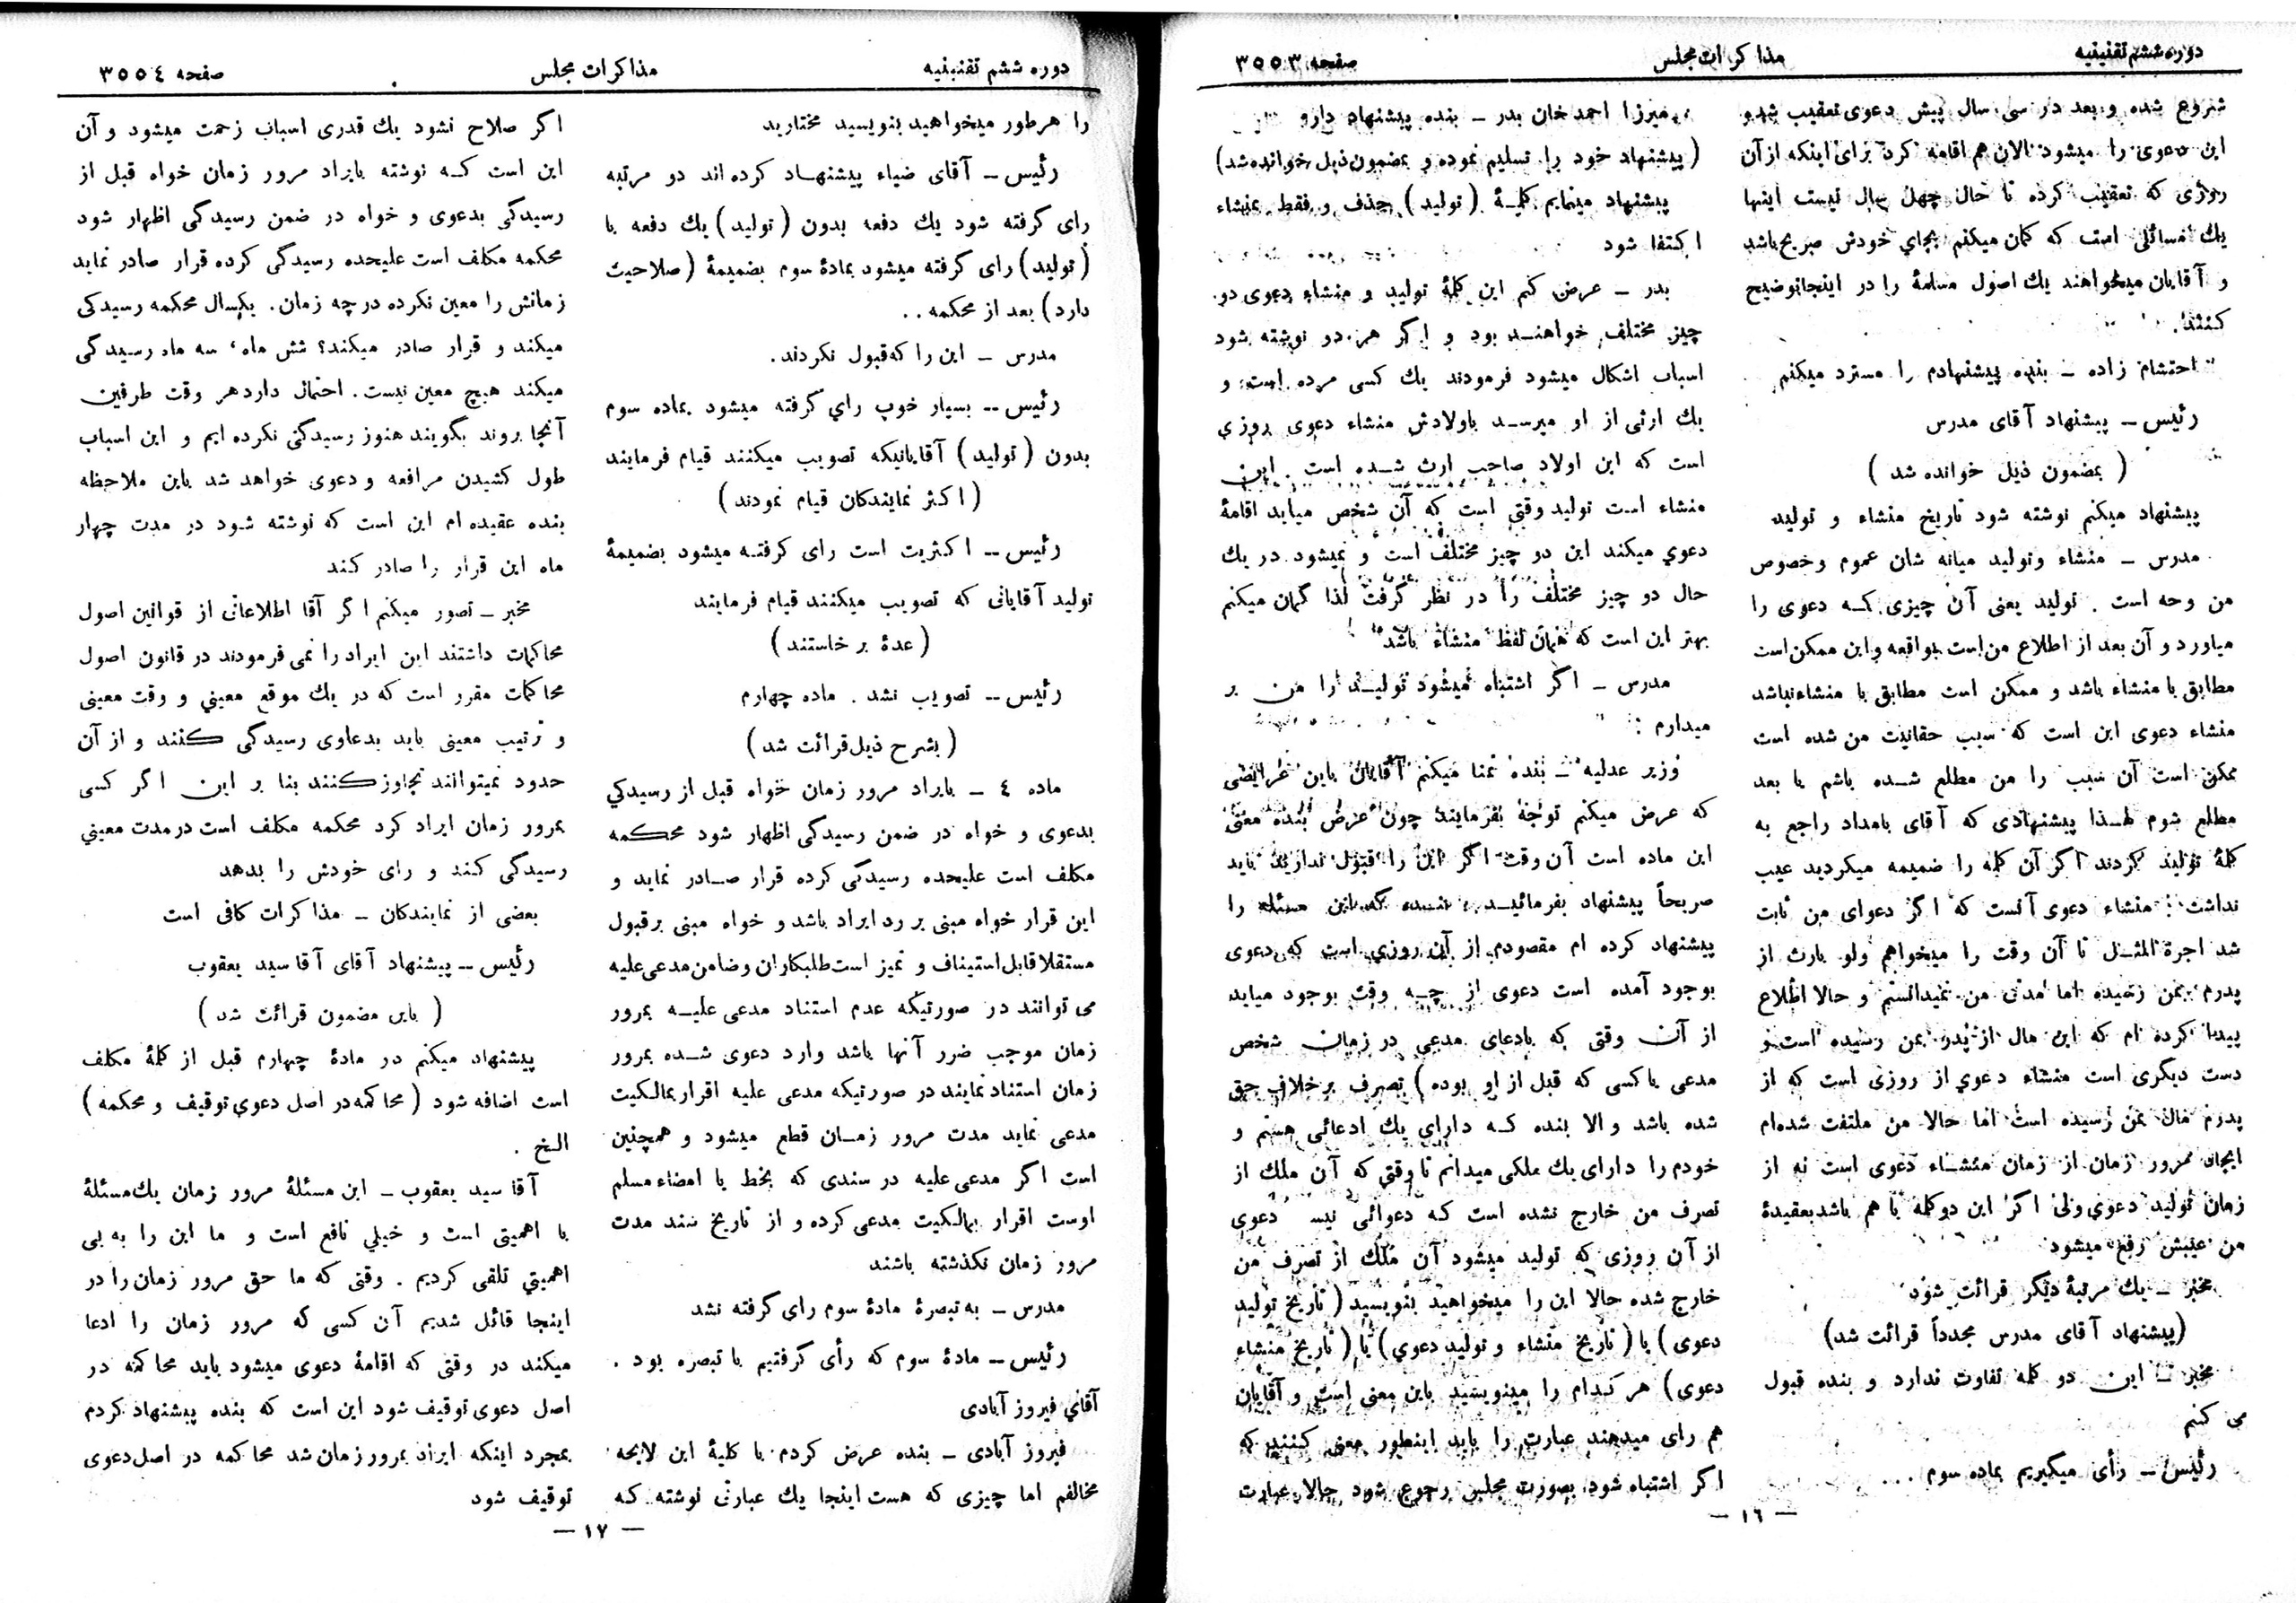 دوره ششم تقنینیه
مذاکرات مجلس
صفحه ۳۵۵۳
شروع شده و بعد در سی سال پیش دعوی تعقیب شده و
این دعوی را میشود الان هم اقامه کرد برای اینکه از آن
روزی که تعقیب کرده تا حال چهل سال نیست اینها
یك مسائلی است که گمان میکنم بجای خودش صریح باشد
و آقایان میخواهند یك اصول مسلمهٔ را در اینجا توضیح
کنند.
احتشام زاده ـ بنده پیشنهادم را مسترد میکنم
رئیس ـ پیشنهاد آقای مدرس
( بمضمون ذیل خوانده شد )
پیشنهاد میکنم نوشته شود تاریخ منشاء و تولید
مدرس ـ منشاء وتولید میانه شان عموم وخصوص
من وجه است . تولید یعنی آن چیزی که دعوی را
میاورد و آن بعد از اطلاع من است بواقعه واین ممکن است
مطابق با منشاء باشد و ممکن است مطابق با منشاء نباشد
منشاء دعوی این است که سبب حقانیت من شده است
ممکن است آن سبب را من مطلع شده باشم یا بعد
مطلع شوم لهذا پیشنهادی که آقای بامداد راجع به
کلمهٔ تولید کردند اگر آن کلمه را ضمیمه میکردید عیب
نداشت : منشاء دعوی آنست که اگر دعوای من ثابت
شد اجرة المثل تا آن وقت را میخواهم ولو بارث از
پدرم بمن رسیده اما مدتی من نمیدانستم و حالا اطلاع
پیدا کرده ام که این مال از پدر بمن رسیده است و
دست دیگری است منشاء دعوی از روزی است که از
پدرم مال بمن رسیده است اما حالا من ملتفت شده ام
ایجاد مرور زمان از زمان منشاء دعوی است نه از
زمان تولید دعوی ولی اگر این دو کلمه با هم باشد بعقیدهٔ
من عیبش رفع میشود
مخبر ـ یك مرتبهٔ دیگر قرائت شود
(پیشنهاد آقای مدرس مجدداً قرائت شد)
مخبر ـ این دو کلمه تفاوت ندارد و بنده قبول
می کنم
رئیس ـ رأی میگیریم بماده سوم ...
میرزا احمد خان بدر ـ بنده پیشنهاد دارم
(پیشنهاد خود را تسلیم نموده و بمضمون ذیل خوانده شد)
پیشنهاد مینمایم کلمهٔ (تولید) حذف و فقط بمنشاء
اکتفا شود
بدر ـ عرض کنم این کلمهٔ تولید و منشاء دعوی دو
چیز مختلف خواهند بود و اگر هر دو نوشته شود
اسباب اشکال میشود فرمودند یك کسی مرده است و
یك ارثی از او میرسد باولادش منشاء دعوی روزی
است که این اولاد صاحب ارث شده است . این
منشاء است تولید وقتی است که آن شخص میاید اقامهٔ
دعوي میکند این دو چیز مختلف است و نمیشود در یك
حال دو چیز مختلف را در نظر گرفت لذا گمان میکنم
بهتر این است که همان لفظ منشاء باشد
مدرس ـ اگر اشتباه میشود تولید را من بر
میدارم :
وزیر عدلیه ـ بنده تمنا میکنم آقایان باین عرایضی
که عرض میکنم توجه بفرمایند چون عرض بنده معنی
این ماده است آن وقت اگر این را قبول ندارید باید
صریحاً پیشنهاد بفرمائید بنده که این مسئله را
پیشنهاد کرده ام مقصودم از آن روزی است که دعوی
بوجود آمده است دعوی از چه وقت بوجود میاید
از آن وقتی که بادعای مدعی در زمان شخص
مدعی یا کسی که قبل از او بوده) تصرف برخلاف حق
شده باشد والا بنده که دارای یك ادعائی هستم و
خودم را دارای یك ملکی میدانم تا وقتی که آن ملك از
تصرف من خارج نشده است که دعوائی نیست دعوی
از آن روزی که تولید میشود آن ملك از تصرف من
خارج شده حالا این را میخواهید بنویسید (تاریخ تولید
دعوی) یا (تاریخ منشاء و تولید دعوي) یا (تاریخ منشاء
دعوی) هر کدام را مینویسید باین معنی است و آقایان
هم رای میدهند عبارت را باید اینطور معنی کنند که
اگر اشتباه شود بصورت مجلس رجوع شود حالا عبارت
— ۱٦ —
دوره ششم تقنینیه
مذاکرات مجلس
صفحه ۳۵۵٤
را هرطور میخواهید بنویسید مختارید
رئیس ـ آقای ضیاء پیشنهاد کرده اند دو مرتبه
رای گرفته شود یك دفعه بدون (تولید) یك دفعه با
(تولید) رای گرفته میشود بمادهٔ سوم بضمیمهٔ (صلاحیت
دارد) بعد از محکمه ..
مدرس ـ این را که قبول نکردند .
رئیس ـ بسیار خوب رأي گرفته میشود بماده سوم
بدون (تولید) آقایانیکه تصویب میکنند قیام فرمایند
(اکثر نمایندگان قیام نمودند)
رئیس ـ اکثریت است رای گرفته میشود بضمیمهٔ
تولید آقایانی که تصویب میکنند قیام فرمایند
(عدهٔ بر خاستند)
رئیس ـ تصویب نشد . ماده چهارم
(بشرح ذیل قرائت شد)
ماده ٤ ـ بایراد مرور زمان خواه قبل از رسیدگي
بدعوی و خواه در ضمن رسیدگی اظهار شود محکمه
مکلف است علیحده رسیدگی کرده قرار صادر نماید و
این قرار خواه مبنی بر رد ایراد باشد و خواه مبنی بر قبول
مستقلا قابل استیناف و تمیز است طلبکاران و ضامن مدعی علیه
می توانند در صورتیکه عدم استناد مدعی علیه بمرور
زمان موجب ضرر آنها باشد وارد دعوی شده بمرور
زمان استناد نمایند در صورتیکه مدعی علیه اقرار بمالکیت
مدعی نماید مدت مرور زمان قطع میشود و همچنین
است اگر مدعی علیه در سندی که بخط یا امضاء مسلم
اوست اقرار بمالکیت مدعی کرده و از تاریخ سند مدت
مرور زمان نگذشته باشند
مدرس ـ به تبصرهٔ مادهٔ سوم رای گرفته نشد
رئیس ـ مادهٔ سوم که رأی گرفتیم با تبصره بود .
آقاي فیروز آبادی
فیروز آبادی ـ بنده عرض کردم با کلیهٔ این لایحه
مخالفم اما چیزی که هست اینجا یك عبارتی نوشته که
اگر صلاح نشود یك قدری اسباب زحمت میشود و آن
این است که نوشته بایراد مرور زمان خواه قبل از
رسیدگی بدعوی و خواه در ضمن رسیدگی اظهار شود
محکمه مکلف است علیحده رسیدگی کرده قرار صادر نماید
زمانش را معین نکرده در چه زمان . یکسال محکمه رسیدگی
میکند و قرار صادر میکند؟ شش ماه ، سه ماه رسیدگی
میکند هیچ معین نیست . احتمال دارد هر وقت طرفین
آنجا بروند بگویند هنوز رسیدگی نکرده ایم و این اسباب
طول کشیدن مرافعه و دعوی خواهد شد باین ملاحظه
بنده عقیده ام این است که نوشته شود در مدت چهار
ماه این قرار را صادر کند
مخبر ـ تصور میکنم اگر آقا اطلاعاتی از قوانین اصول
محاکمات داشتند این ایراد را نمی فرمودند در قانون اصول
محاکمات مقرر است که در یك موقع معیني و وقت معینی
و ترتیب معینی باید بدعاوی رسیدگی کنند و از آن
حدود نمیتوانند تجاوز کنند بنا بر این اگر کسی
بمرور زمان ایراد کرد محکمه مکلف است در مدت معیني
رسیدگی کند و رای خودش را بدهد
بعضی از نمایندگان ـ مذاکرات کافی است
رئیس ـ پیشنهاد آقای آقا سید یعقوب
(باین مضمون قرائت شد)
پیشنهاد میکنم در مادهٔ چهارم قبل از کلمهٔ مکلف
است اضافه شود (محاکمه در اصل دعوي توقیف و محکمه)
الخ .
آقا سید یعقوب ـ این مسئلهٔ مرور زمان یك مسئلهٔ
با اهمیتی است و خیلي نافع است و ما این را به بی
اهمیتي تلقی کردیم . وقتی که ما حق مرور زمان را در
اینجا قائل شدیم آن کسی که مرور زمان را ادعا
میکند در وقتی که اقامهٔ دعوی میشود باید محاکمه در
اصل دعوی توقیف شود این است که بنده پیشنهاد کردم
بمجرد اینکه ایراد بمرور زمان شد محاکمه در اصل دعوی
توقیف شود
— ۱۷ —